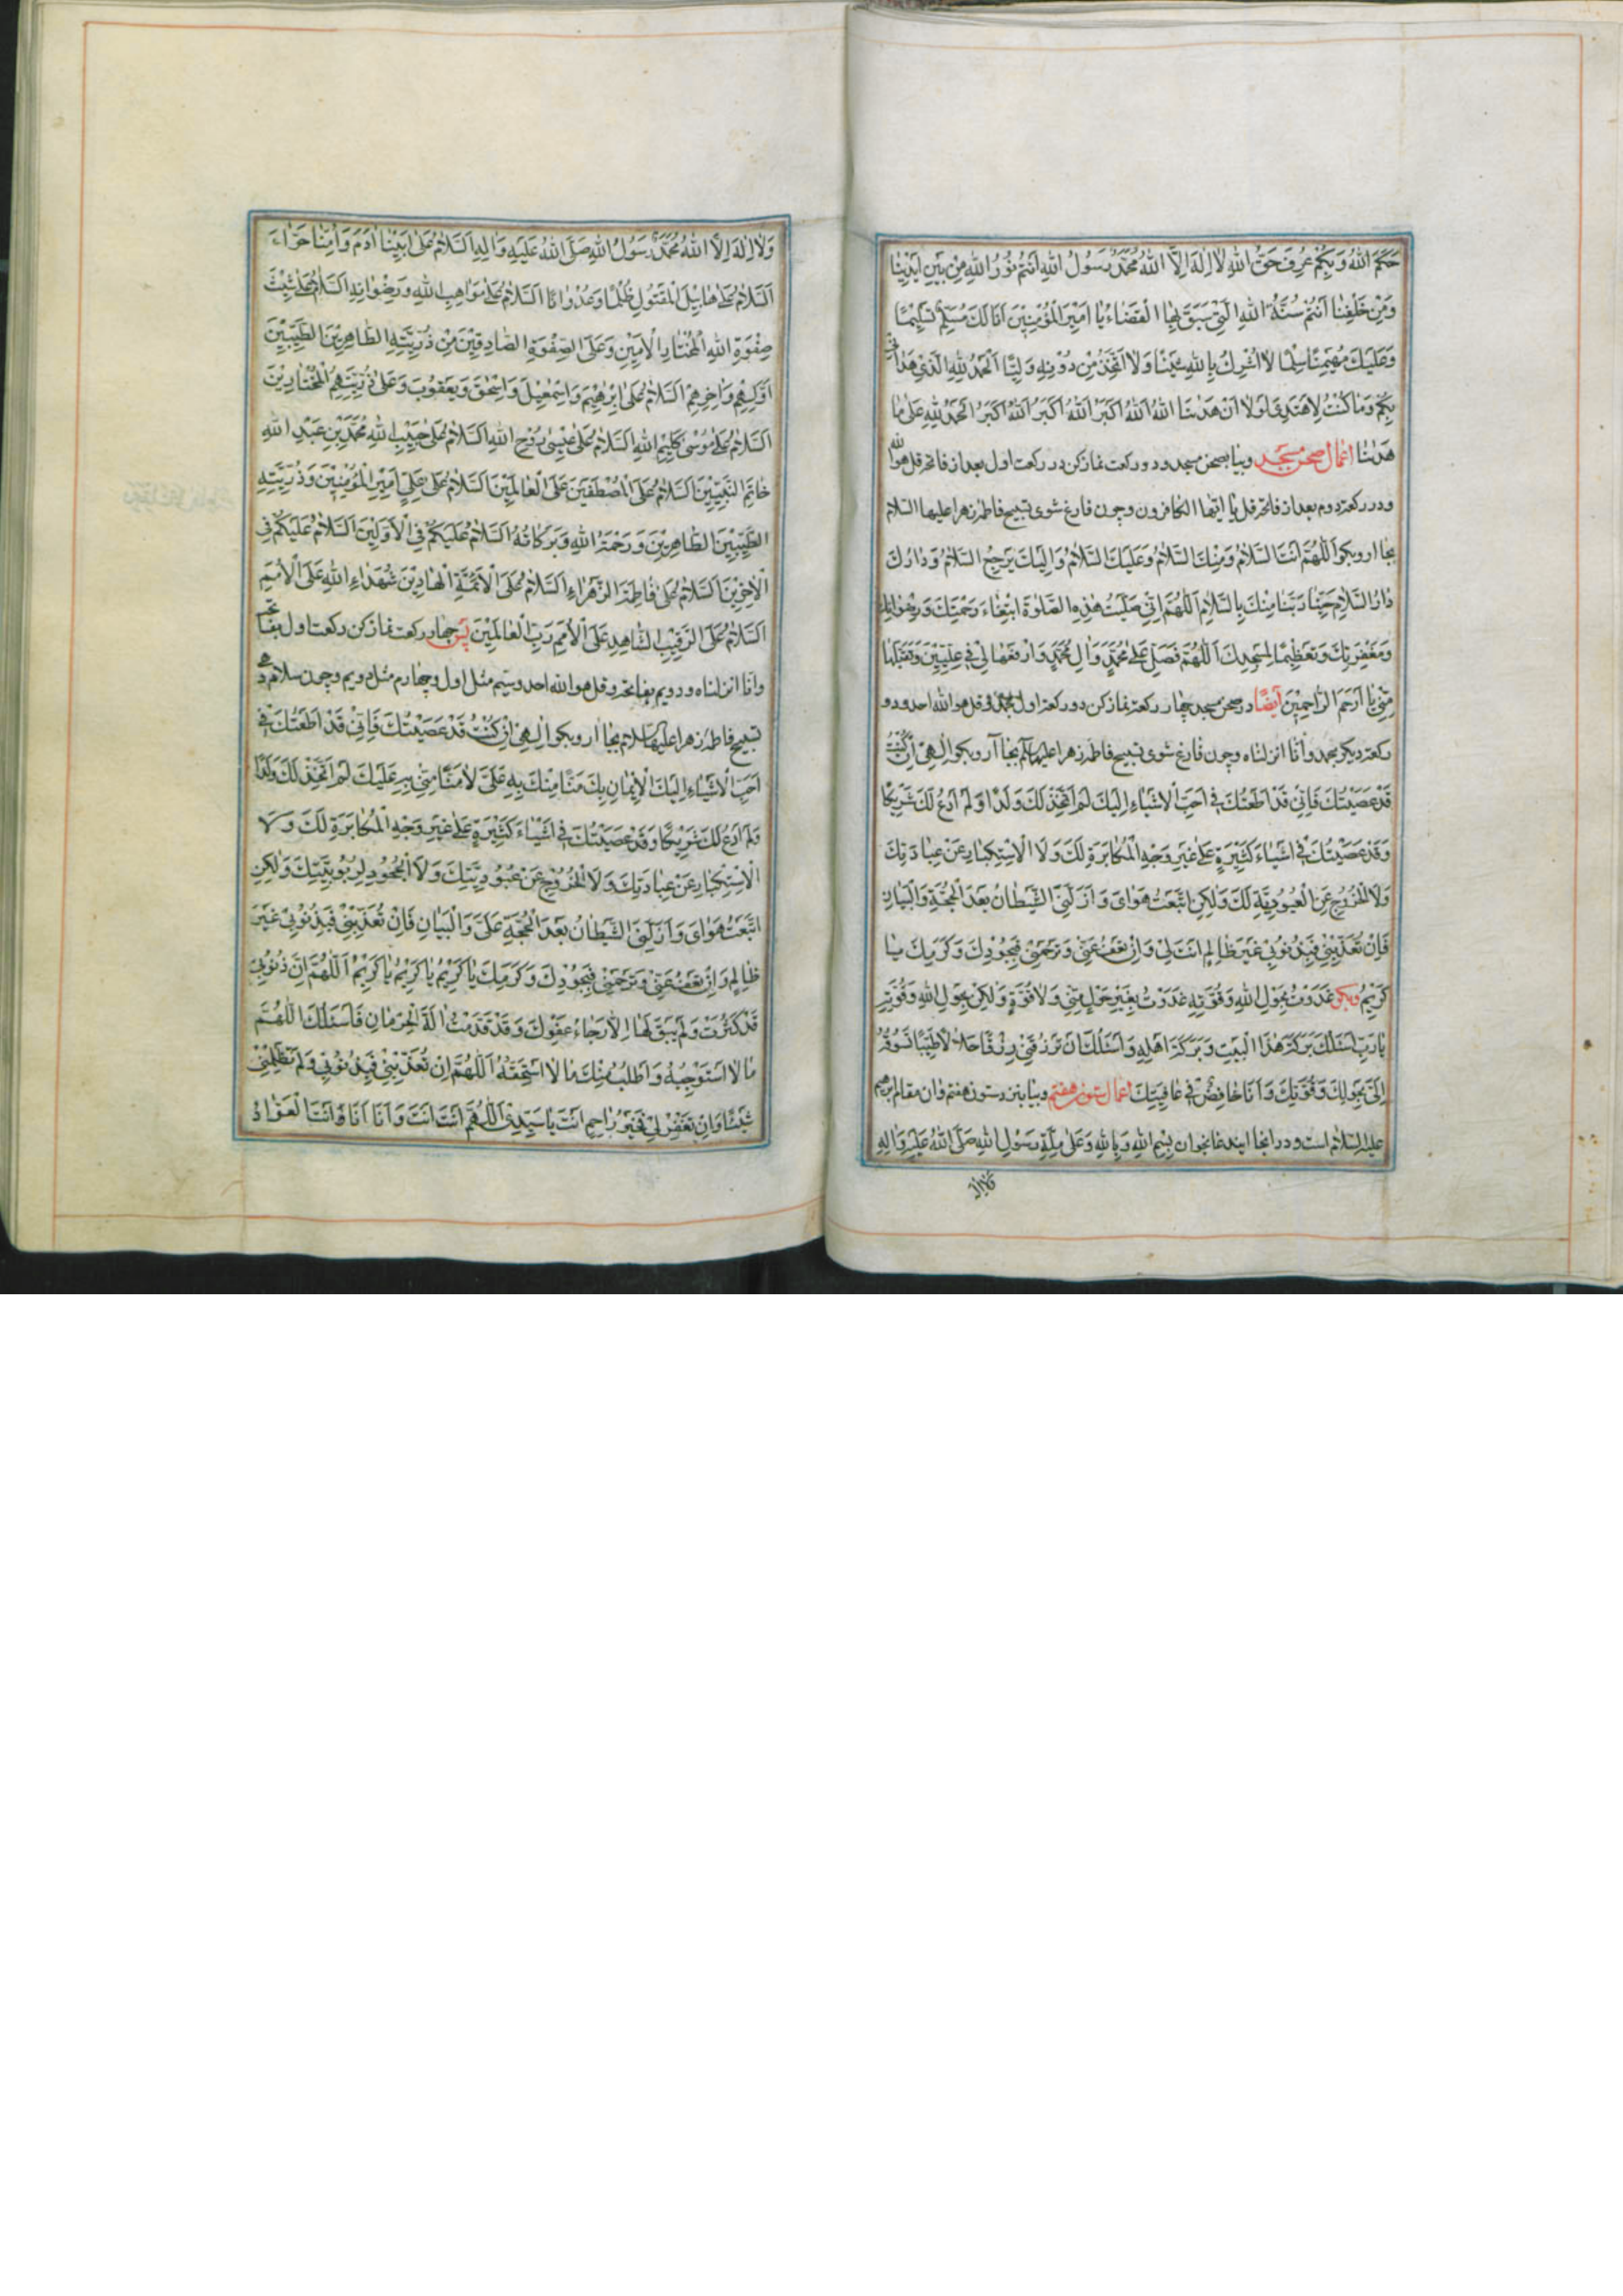 حَكَمَ اللهُ وَبِكُمْ عُرِفَ حَقُّ اللهِ لَا اِلٰهَ اِلَّا اللهُ مُحَمَّدٌ رَسُولُ اللهِ اَنْتُمْ نُورُ اللهِ مِنْ بَيْنِ اَيْدِينَا
وَمِنْ خَلْفِنَا اَنْتُمْ سُنَّةُ اللهِ الَّتِي سَبَقَ بِهَا الْقَضَاءُ يَا اَمِيرَ الْمُؤْمِنِينَ اَنَا لَكَ مُسَلِّمٌ تَسْلِيمًا
لَا اُشْرِكُ بِاللهِ شَيْئًا وَلَا اَتَّخِذُ مِنْ دُونِهِ وَلِيًّا اَلْحَمْدُ لِلّٰهِ الَّذِي هَدَانِي
بِكُمْ وَمَا كُنْتُ لِاَهْتَدِيَ لَوْلَا اَنْ هَدٰنَا اللهُ اَللهُ اَكْبَرُ اَللهُ اَكْبَرُ اَللهُ اَكْبَرُ اَلْحَمْدُ لِلّٰهِ عَلٰى مَا
هَدٰنَا اعمال صحن مسجد وبيا بصحن مسجد ودو ركعت نماز كن در ركعت اول بعد از فاتحه قل هو الله
ودر ركعت دوم بعد از فاتحه قل يا ايها الكافرون وچون فارغ شوى تسبيح فاطمه زهرا عليها السلام
بجا ار وبكو اَللّٰهُمَّ اَنْتَ السَّلَامُ وَمِنْكَ السَّلَامُ وَعَلَيْكَ السَّلَامُ وَاِلَيْكَ يَرْجِعُ السَّلَامُ وَدَارُكَ
دَارُ السَّلَامِ حَيِّنَا رَبَّنَا مِنْكَ بِالسَّلَامِ اَللّٰهُمَّ اِنِّي صَلَّيْتُ هٰذِهِ الصَّلٰوةَ ابْتِغَاءَ رَحْمَتِكَ وَرِضْوَانِكَ
وَمَغْفِرَتِكَ وَتَعْظِيمًا لِمَسْجِدِكَ اَللّٰهُمَّ فَصَلِّ عَلٰى مُحَمَّدٍ وَاٰلِ مُحَمَّدٍ وَارْفَعْهَا لِي فِي عِلِّيِّينَ وَتَقَبَّلْهَا
مِنِّي يَا اَرْحَمَ الرَّاحِمِينَ ايضًا در صحن مسجد چهار ركعت نماز كن دو ركعت اول بحمد وقل هو الله احد ودو
ركعت ديكر بحمد وانا انزلناه وچون فارغ شوى تسبيح فاطمه زهرا عليها السلام بجا آر وبكو اِلٰهِي اِنْ كُنْتُ
قَدْ عَصَيْتُكَ فَاِنِّي قَدْ اَطَعْتُكَ فِي اَحَبِّ الْاَشْيَاءِ اِلَيْكَ لَمْ اَتَّخِذْ لَكَ وَلَدًا وَلَمْ اَدْعُ لَكَ شَرِيكًا
وَقَدْ عَصَيْتُكَ فِي اَشْيَاءَ كَثِيرَةٍ عَلٰى غَيْرِ وَجْهِ الْمُكَابَرَةِ لَكَ وَلَا الْاِسْتِكْبَارِ عَنْ عِبَادَتِكَ
وَلَا الْخُرُوجِ عَنِ الْعُبُودِيَّةِ لَكَ وَلٰكِنِ اتَّبَعْتُ هَوَايَ وَاَزَلَّنِي الشَّيْطَانُ بَعْدَ الْحُجَّةِ وَالْبَيَانِ
فَاِنْ تُعَذِّبْنِي فَبِذُنُوبِي غَيْرَ ظَالِمٍ اَنْتَ لِي وَاِنْ تَعْفُ عَنِّي وَتَرْحَمْنِي فَبِجُودِكَ وَكَرَمِكَ يَا
كَرِيمُ وبكو غَدَوْتُ بِحَوْلِ اللهِ وَقُوَّتِهِ غَدَوْتُ بِغَيْرِ حَوْلٍ مِنِّي وَلَا قُوَّةٍ وَلٰكِنْ بِحَوْلِ اللهِ وَقُوَّتِهِ
يَا رَبِّ اَسْئَلُكَ بَرَكَةَ هٰذَا الْبَيْتِ وَبَرَكَةَ اَهْلِهِ وَاَسْئَلُكَ اَنْ تَرْزُقَنِي رِزْقًا حَلَالًا طَيِّبًا تَسُوقُهُ
اِلَيَّ بِحَوْلِكَ وَقُوَّتِكَ وَاَنَا خَافِضٌ فِي عَافِيَتِكَ اعمال ستون هفتم وبيا بنزد ستون هفتم وان مقام ابرهيم
عليه السلام است ودر انجا ايستاده بخوان بِسْمِ اللهِ وَبِاللهِ وَعَلٰى مِلَّةِ رَسُولِ اللهِ صَلَّى اللهُ عَلَيْهِ وَاٰلِهِ
وَلَا اِلٰهَ اِلَّا اللهُ مُحَمَّدٌ رَسُولُ اللهِ صَلَّى اللهُ عَلَيْهِ وَاٰلِهِ اَلسَّلَامُ عَلٰى اَبِينَا اٰدَمَ وَاُمِّنَا حَوَّاءَ
اَلسَّلَامُ عَلٰى هَابِيلَ الْمَقْتُولِ ظُلْمًا وَعُدْوَانًا اَلسَّلَامُ عَلٰى مَوَاهِبِ اللهِ وَرِضْوَانِهِ اَلسَّلَامُ عَلٰى شَيْثَ
صِفْوَةِ اللهِ الْمُخْتَارِ الْاَمِينِ وَعَلَى الصِّفْوَةِ الصَّادِقِينَ مِنْ ذُرِّيَّتِهِ الطَّاهِرِينَ الطَّيِّبِينَ
اَوَّلِهِمْ وَاٰخِرِهِمْ اَلسَّلَامُ عَلٰى اِبْرٰهِيمَ وَاِسْمٰعِيلَ وَاِسْحٰقَ وَيَعْقُوبَ وَعَلٰى ذُرِّيَّتِهِمُ الْمُخْتَارِينَ
اَلسَّلَامُ عَلٰى مُوسٰى كَلِيمِ اللهِ اَلسَّلَامُ عَلٰى عِيسٰى رُوحِ اللهِ اَلسَّلَامُ عَلٰى حَبِيبِ اللهِ مُحَمَّدِ بْنِ عَبْدِ اللهِ
خَاتَمِ النَّبِيِّينَ اَلسَّلَامُ عَلَى الْمُصْطَفَيْنَ عَلَى الْعَالَمِينَ اَلسَّلَامُ عَلٰى عَلِيٍّ اَمِيرِ الْمُؤْمِنِينَ وَذُرِّيَّتِهِ
الطَّيِّبِينَ الطَّاهِرِينَ وَرَحْمَةُ اللهِ وَبَرَكَاتُهُ اَلسَّلَامُ عَلَيْكُمْ فِي الْاَوَّلِينَ اَلسَّلَامُ عَلَيْكُمْ فِي
الْاٰخِرِينَ اَلسَّلَامُ عَلٰى فَاطِمَةَ الزَّهْرَاءِ اَلسَّلَامُ عَلَى الْاَئِمَّةِ الْهَادِينَ شُهَدَاءِ اللهِ عَلَى الْاُمَمِ
اَلسَّلَامُ عَلَى الرَّقِيبِ الشَّاهِدِ عَلَى الْاُمَمِ رَبِّ الْعَالَمِينَ پس چهار ركعت نماز كن ركعت اول بفاتحه
وانا انزلناه ودويم بفاتحه وقل هو الله احد وسيم مثل اول وچهارم مثل دويم وچون سلام دهى
تسبيح فاطمه زهرا عليها سلام بجا ار وبكو اِلٰهِي اِنْ كُنْتُ قَدْ عَصَيْتُكَ فَاِنِّي قَدْ اَطَعْتُكَ فِي
اَحَبِّ الْاَشْيَاءِ اِلَيْكَ الْاِيمَانِ بِكَ مَنًّا مِنْكَ بِهِ عَلَيَّ لَا مَنًّا مِنِّي بِهِ عَلَيْكَ لَمْ اَتَّخِذْ لَكَ وَلَدًا
وَلَمْ اَدْعُ لَكَ شَرِيكًا وَقَدْ عَصَيْتُكَ فِي اَشْيَاءَ كَثِيرَةٍ عَلٰى غَيْرِ وَجْهِ الْمُكَابَرَةِ لَكَ وَلَا
الْاِسْتِكْبَارِ عَنْ عِبَادَتِكَ وَلَا الْخُرُوجِ عَنْ عُبُودِيَّتِكَ وَلَا الْجُحُودِ لِرُبُوبِيَّتِكَ وَلٰكِنِ
اتَّبَعْتُ هَوَايَ وَاَزَلَّنِي الشَّيْطَانُ بَعْدَ الْحُجَّةِ عَلَيَّ وَالْبَيَانِ فَاِنْ تُعَذِّبْنِي فَبِذُنُوبِي غَيْرَ
ظَالِمٍ وَاِنْ تَعْفُ عَنِّي وَتَرْحَمْنِي فَبِجُودِكَ وَكَرَمِكَ يَا كَرِيمُ يَا كَرِيمُ يَا كَرِيمُ اَللّٰهُمَّ اِنَّ ذُنُوبِي
قَدْ كَثُرَتْ وَلَمْ يَبْقَ لَهَا اِلَّا رَجَاءُ عَفْوِكَ وَقَدْ قَدَّمْتُ اٰلَةَ الْحِرْمَانِ فَاَسْئَلُكَ اللّٰهُمَّ
مَا لَا اَسْتَوْجِبُهُ وَاَطْلُبُ مِنْكَ مَا لَا اَسْتَحِقُّهُ اَللّٰهُمَّ اِنْ تُعَذِّبْنِي فَبِذُنُوبِي وَلَمْ تَظْلِمْنِي
شَيْئًا وَاِنْ تَغْفِرْ لِي فَخَيْرُ رَاحِمٍ اَنْتَ يَا سَيِّدِي اَللّٰهُمَّ اَنْتَ اَنْتَ وَاَنَا اَنَا وَاَنْتَ الْعَوَّادُ